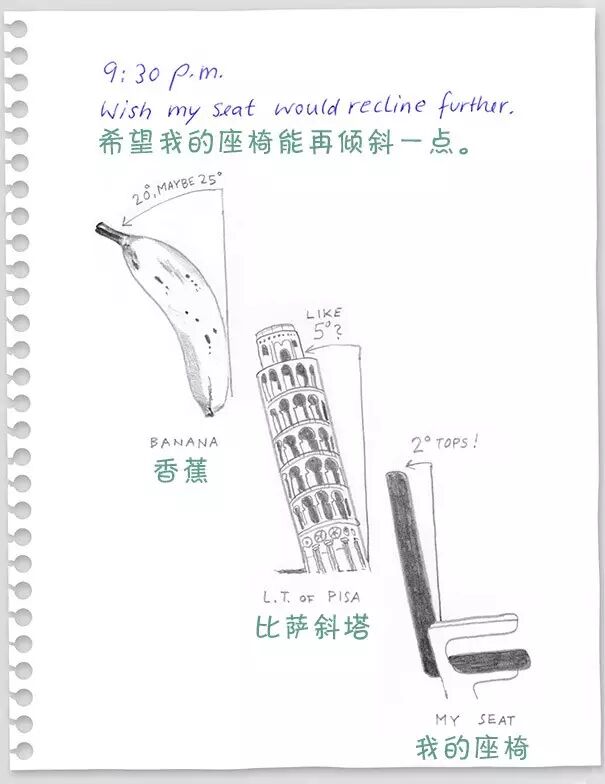 9:30 p.m.
Wish my seat would recline further.
希望我的座椅能再倾斜一点。
20°, MAYBE 25°
LIKE
5°?
BANANA
香蕉
2° TOPS!
L.T. OF PISA
比萨斜塔
MY SEAT
我的座椅